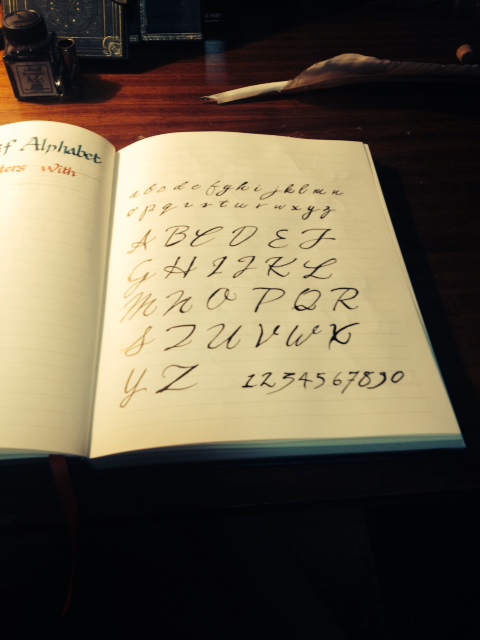 f Alphabet
ters With
a b c d e f g h i j k l m n
o p q r s t u v w x y z
A B C D E F
G H I J K L
M N O P Q R
S T U V W X
Y Z 1234567890